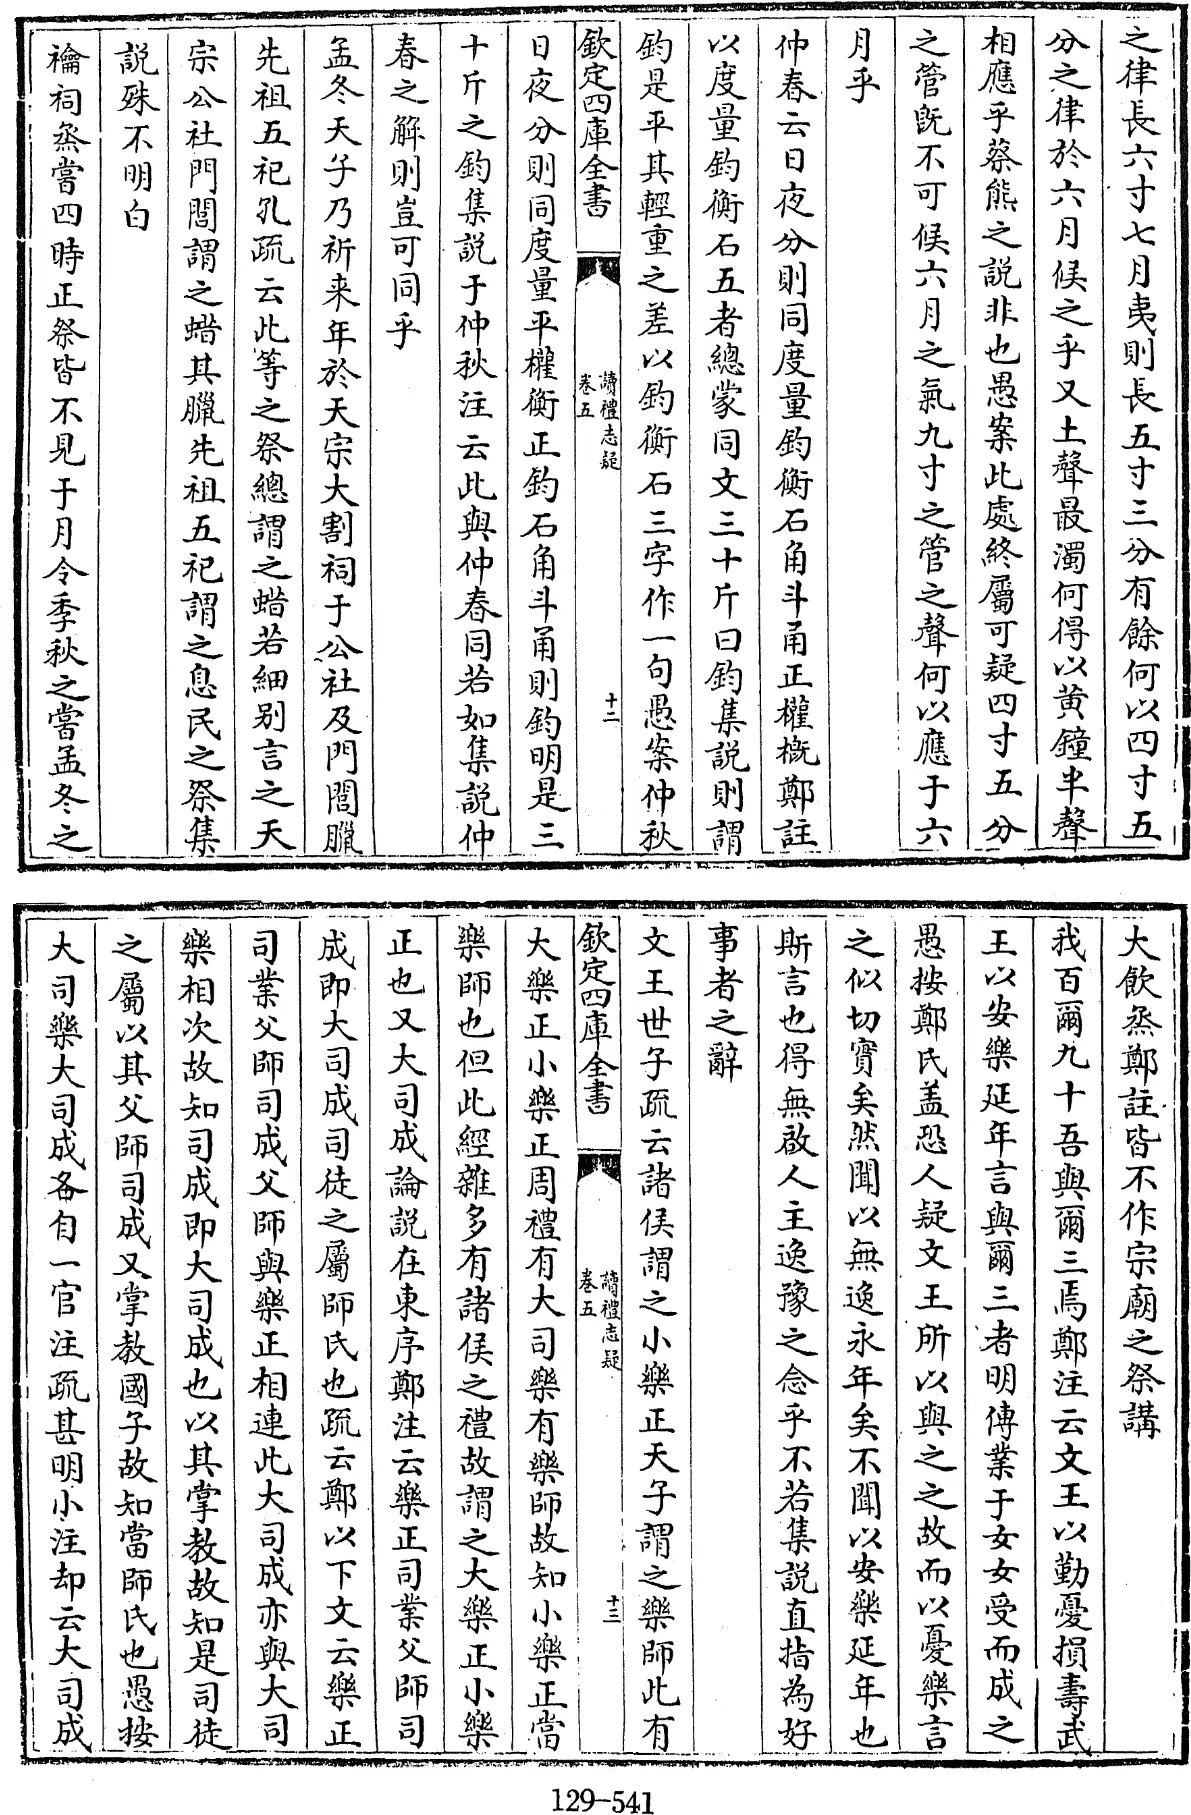 之律長六寸七月夷則長五寸三分有餘何以四寸五
分之律於六月候之乎又土聲最濁何得以黄鐘半聲
相應乎蔡熊之說非也愚案此處終屬可疑四寸五分
之管旣不可候六月之氣九寸之管之聲何以應于六
月乎
仲春云日夜分則同度量鈞衡石角斗甬正權槪鄭註
以度量鈞衡石五者總蒙同文三十斤曰鈞集説則謂
鈞是平其輕重之差以鈞衡石三字作一句愚案仲秋
欽定四庫全書
讀禮志疑
卷五
十二
日夜分則同度量平權衡正鈞石角斗甬則鈞明是三
十斤之鈞集説于仲秋注云此與仲春同若如集説仲
春之解則豈可同乎
孟冬天子乃祈来年於天宗大割祠于公社及門閭臘
先祖五祀孔疏云此等之祭總謂之蜡若細别言之天
宗公社門閭謂之蜡其臘先祖五祀謂之息民之祭集
説殊不明白
禴祠烝嘗四時正祭皆不見于月令季秋之嘗孟冬之
大飲烝鄭註皆不作宗廟之祭講
我百爾九十吾與爾三焉鄭注云文王以勤憂損壽武
王以安樂延年言與爾三者明傳業于女女受而成之
愚按鄭氏盖恐人疑文王所以與之之故而以憂樂言
之似切實矣然聞以無逸永年矣不聞以安樂延年也
斯言也得無啟人主逸豫之念乎不若集説直指為好
事者之辭
文王世子疏云諸侯謂之小樂正天子謂之樂師此有
欽定四庫全書
讀禮志疑
卷五
十三
大樂正小樂正周禮有大司樂有樂師故知小樂正當
樂師也但此經雜多有諸侯之禮故謂之大樂正小樂
正也又大司成論説在東序鄭注云樂正司業父師司
成即大司成司徒之屬師氏也疏云鄭以下文云樂正
司業父師司成父師與樂正相連此大司成亦與大司
樂相次故知司成即大司成也以其掌教故知是司徒
之屬以其父師司成又掌教國子故知當師氏也愚按
大司樂大司成各自一官注疏甚明小注却云大司成
129-541